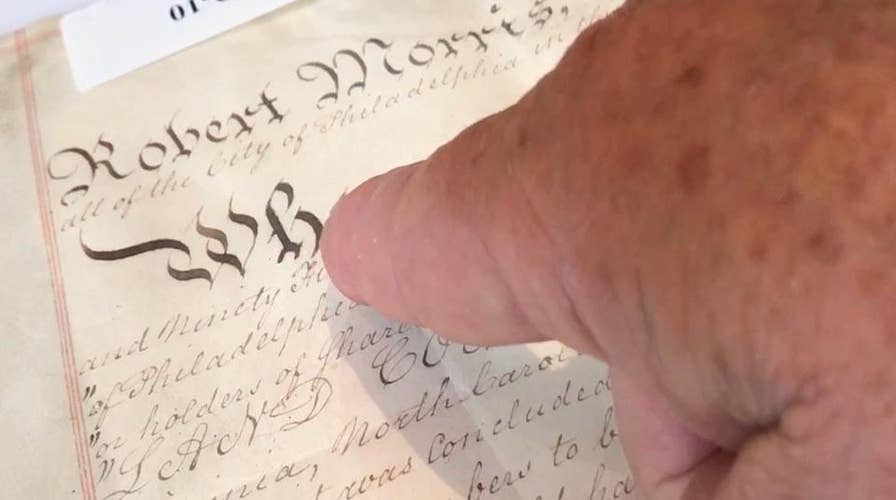 01-
Robert Morris,
all of the City of Philadelphia in the
Wh
and Ninety
"of Philadelphia
"or holders of Share
"LAND CO
North Carol
was concluded
bers to b